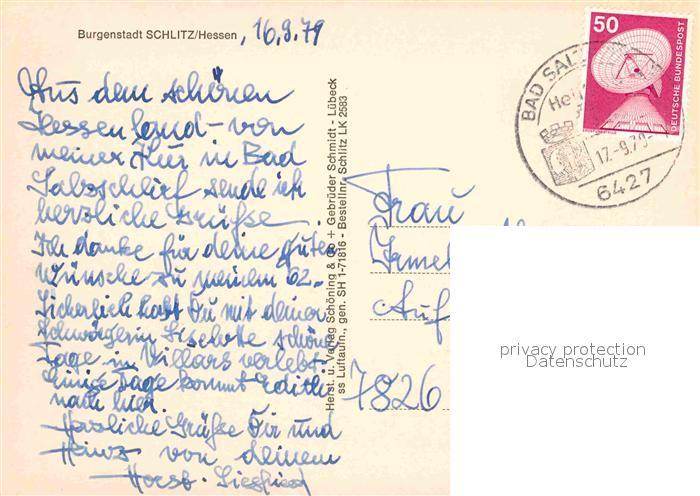 Burgenstadt SCHLITZ/Hessen , 16.9.79
Aus dem schönen
Hessenland - von
meiner Kur in Bad
Salzschlirf sende ich
herzliche Grüße.
Ich danke für deine guten
Wünsche zu meinem 62.
Sicherlich hast Du mit deiner
Schwägerin Liselotte schöne
Tage in Villars verlebt.
Einige Tage kommt Edith
nach hier.
Herzliche Grüße Dir und
Heinz von deinem
Horst-Siegfried
Herst. u. Verlag Schöning & Co + Gebrüder Schmidt - Lübeck
ss Luftaufn., gen. SH 1-71816 - Bestellnr. Schlitz LK 2583
50
DEUTSCHE BUNDESPOST
BAD SALZ
Hei
17.-9.79
6427
Frau
Irmel
Auf
7826
privacy protection
Datenschutz